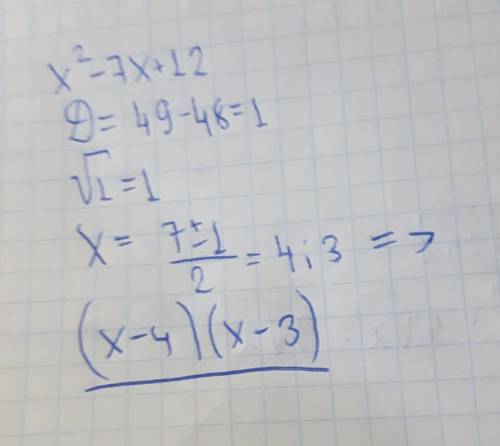 x²-7x+12
D= 49-48=1
√1=1
x= (7±1)/2 = 4;3 =>
(x-4)(x-3)